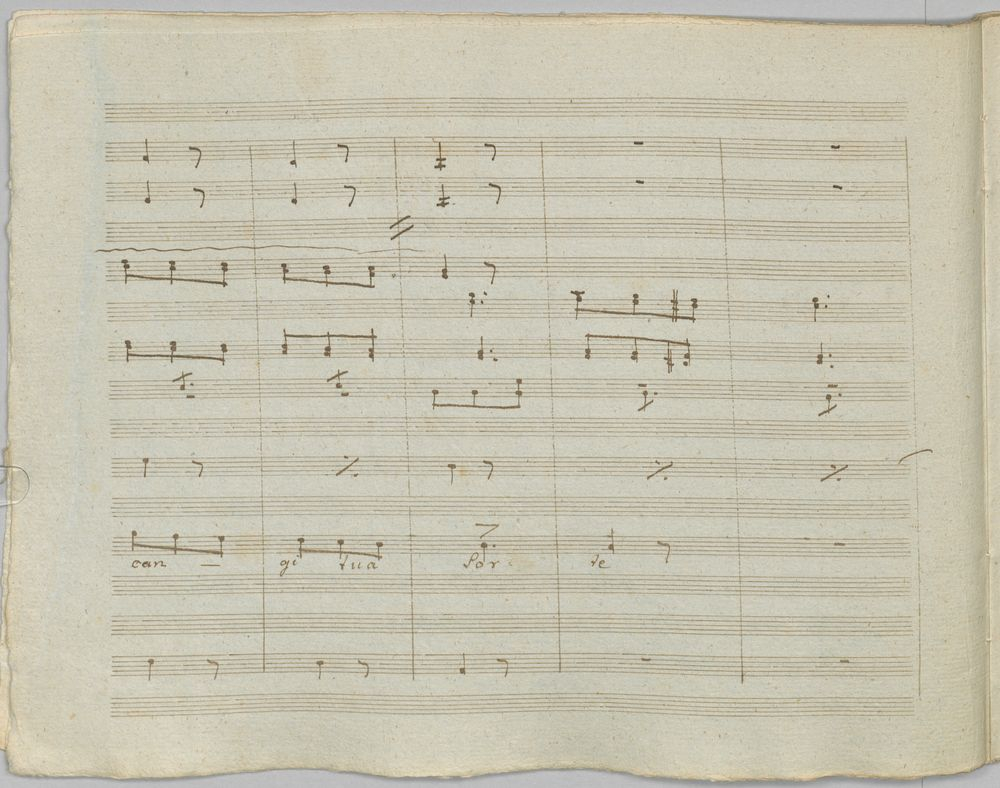 can - gi tua sor - te